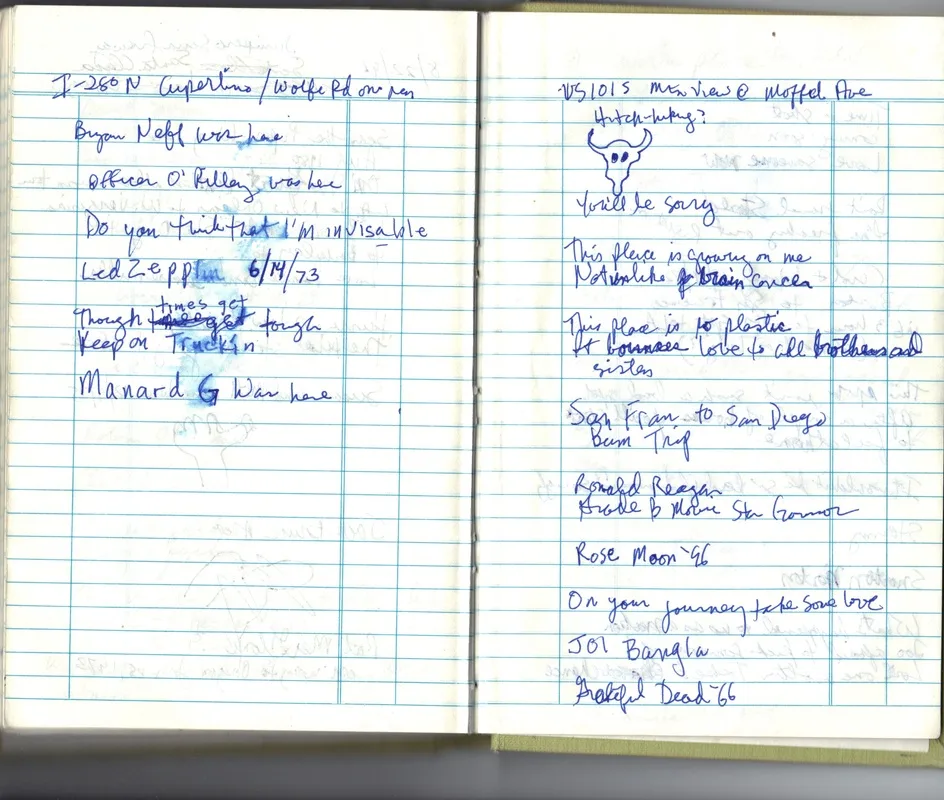 I-280 N Cupertino/Wolfe Rd on
Bryan Neff was here
officer O'Rilley was here
Do you think that I'm invisable
Led Zepplin 6/14/73
times get
Though tough
Keep on Truckin
Manard G Was here
US 101 S Mtn View @ Moffet Ave
Hitch-hiking?
You'll be sorry
This place is growing on me
Not unlike brain cancer
This place is no plastic
It bounces love to all brothers and
sisters
San Fran to San Diego
Bum Trip
Ronald Reagan
Grade B Movie Star Govornor
Rose Moon '96
On your journey take some love
JOI Bangla
Grateful Dead '66